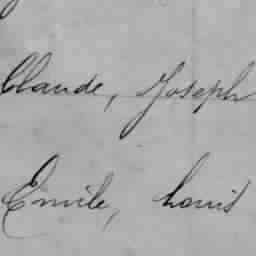 Claude, Joseph
Emile, Louis